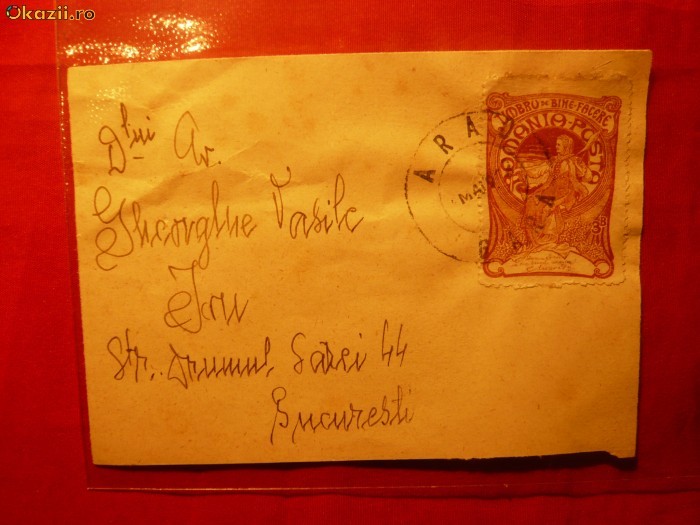 Okazii.ro
Dlui Av.
Gheorghe Vasile
Ion
Str. Drumul Sărei 44
București
ARAD
TIMBRU DE BINE-FACERE
ROMANIA·POSTA
3B